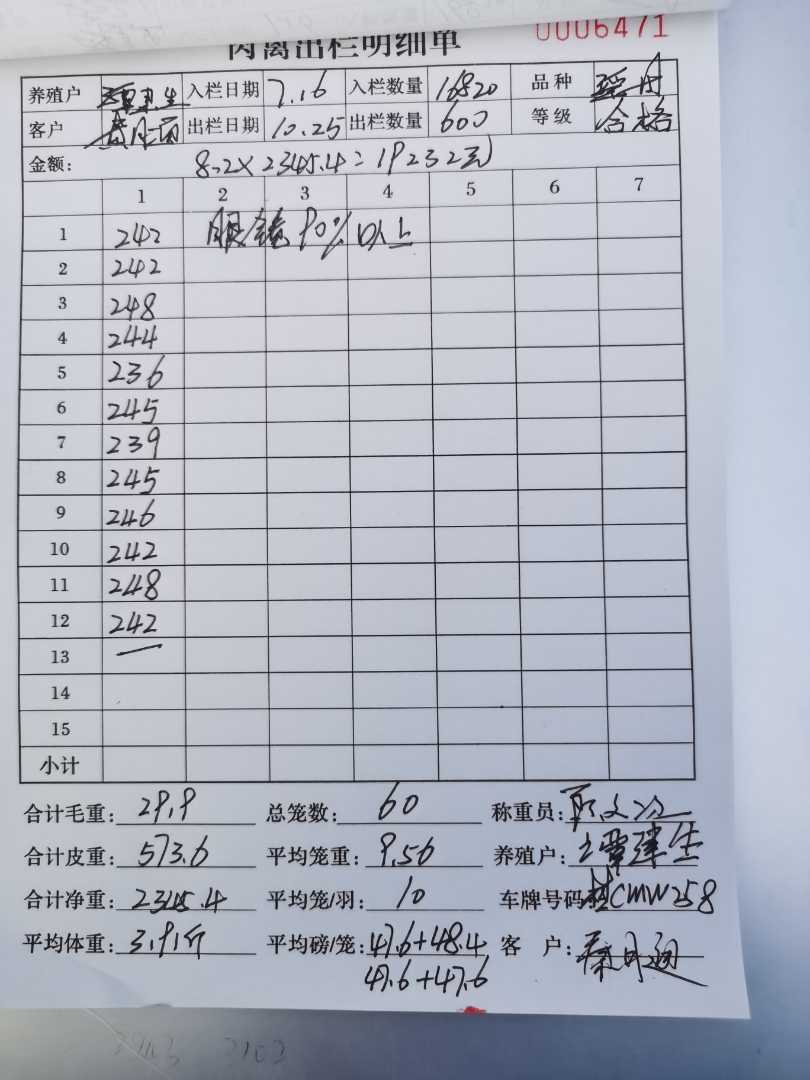 肉禽出栏明细单 0006471
养殖户 入栏日期 7.16 入栏数量 16820 品种
客户 出栏日期 10.25 出栏数量 600 等级 合格
金额: 8.2×2345.4=19232元
1 2 3 4 5 6 7
1 242 眼镜90%以上
2 242
3 248
4 244
5 236
6 245
7 239
8 245
9 246
10 242
11 248
12 242
13
14
15
小计
合计毛重: 29.9 总笼数: 60 称重员:
合计皮重: 573.6 平均笼重: 9.56 养殖户: 覃建生
合计净重: 2345.4 平均笼/羽: 10 车牌号码 桂CMW258
平均体重: 3.9斤 平均磅/笼: 47.6+48.4 客 户:
47.6+47.6